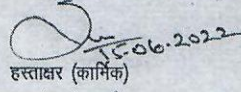 15-06-2022
हस्ताक्षर (कार्मिक)